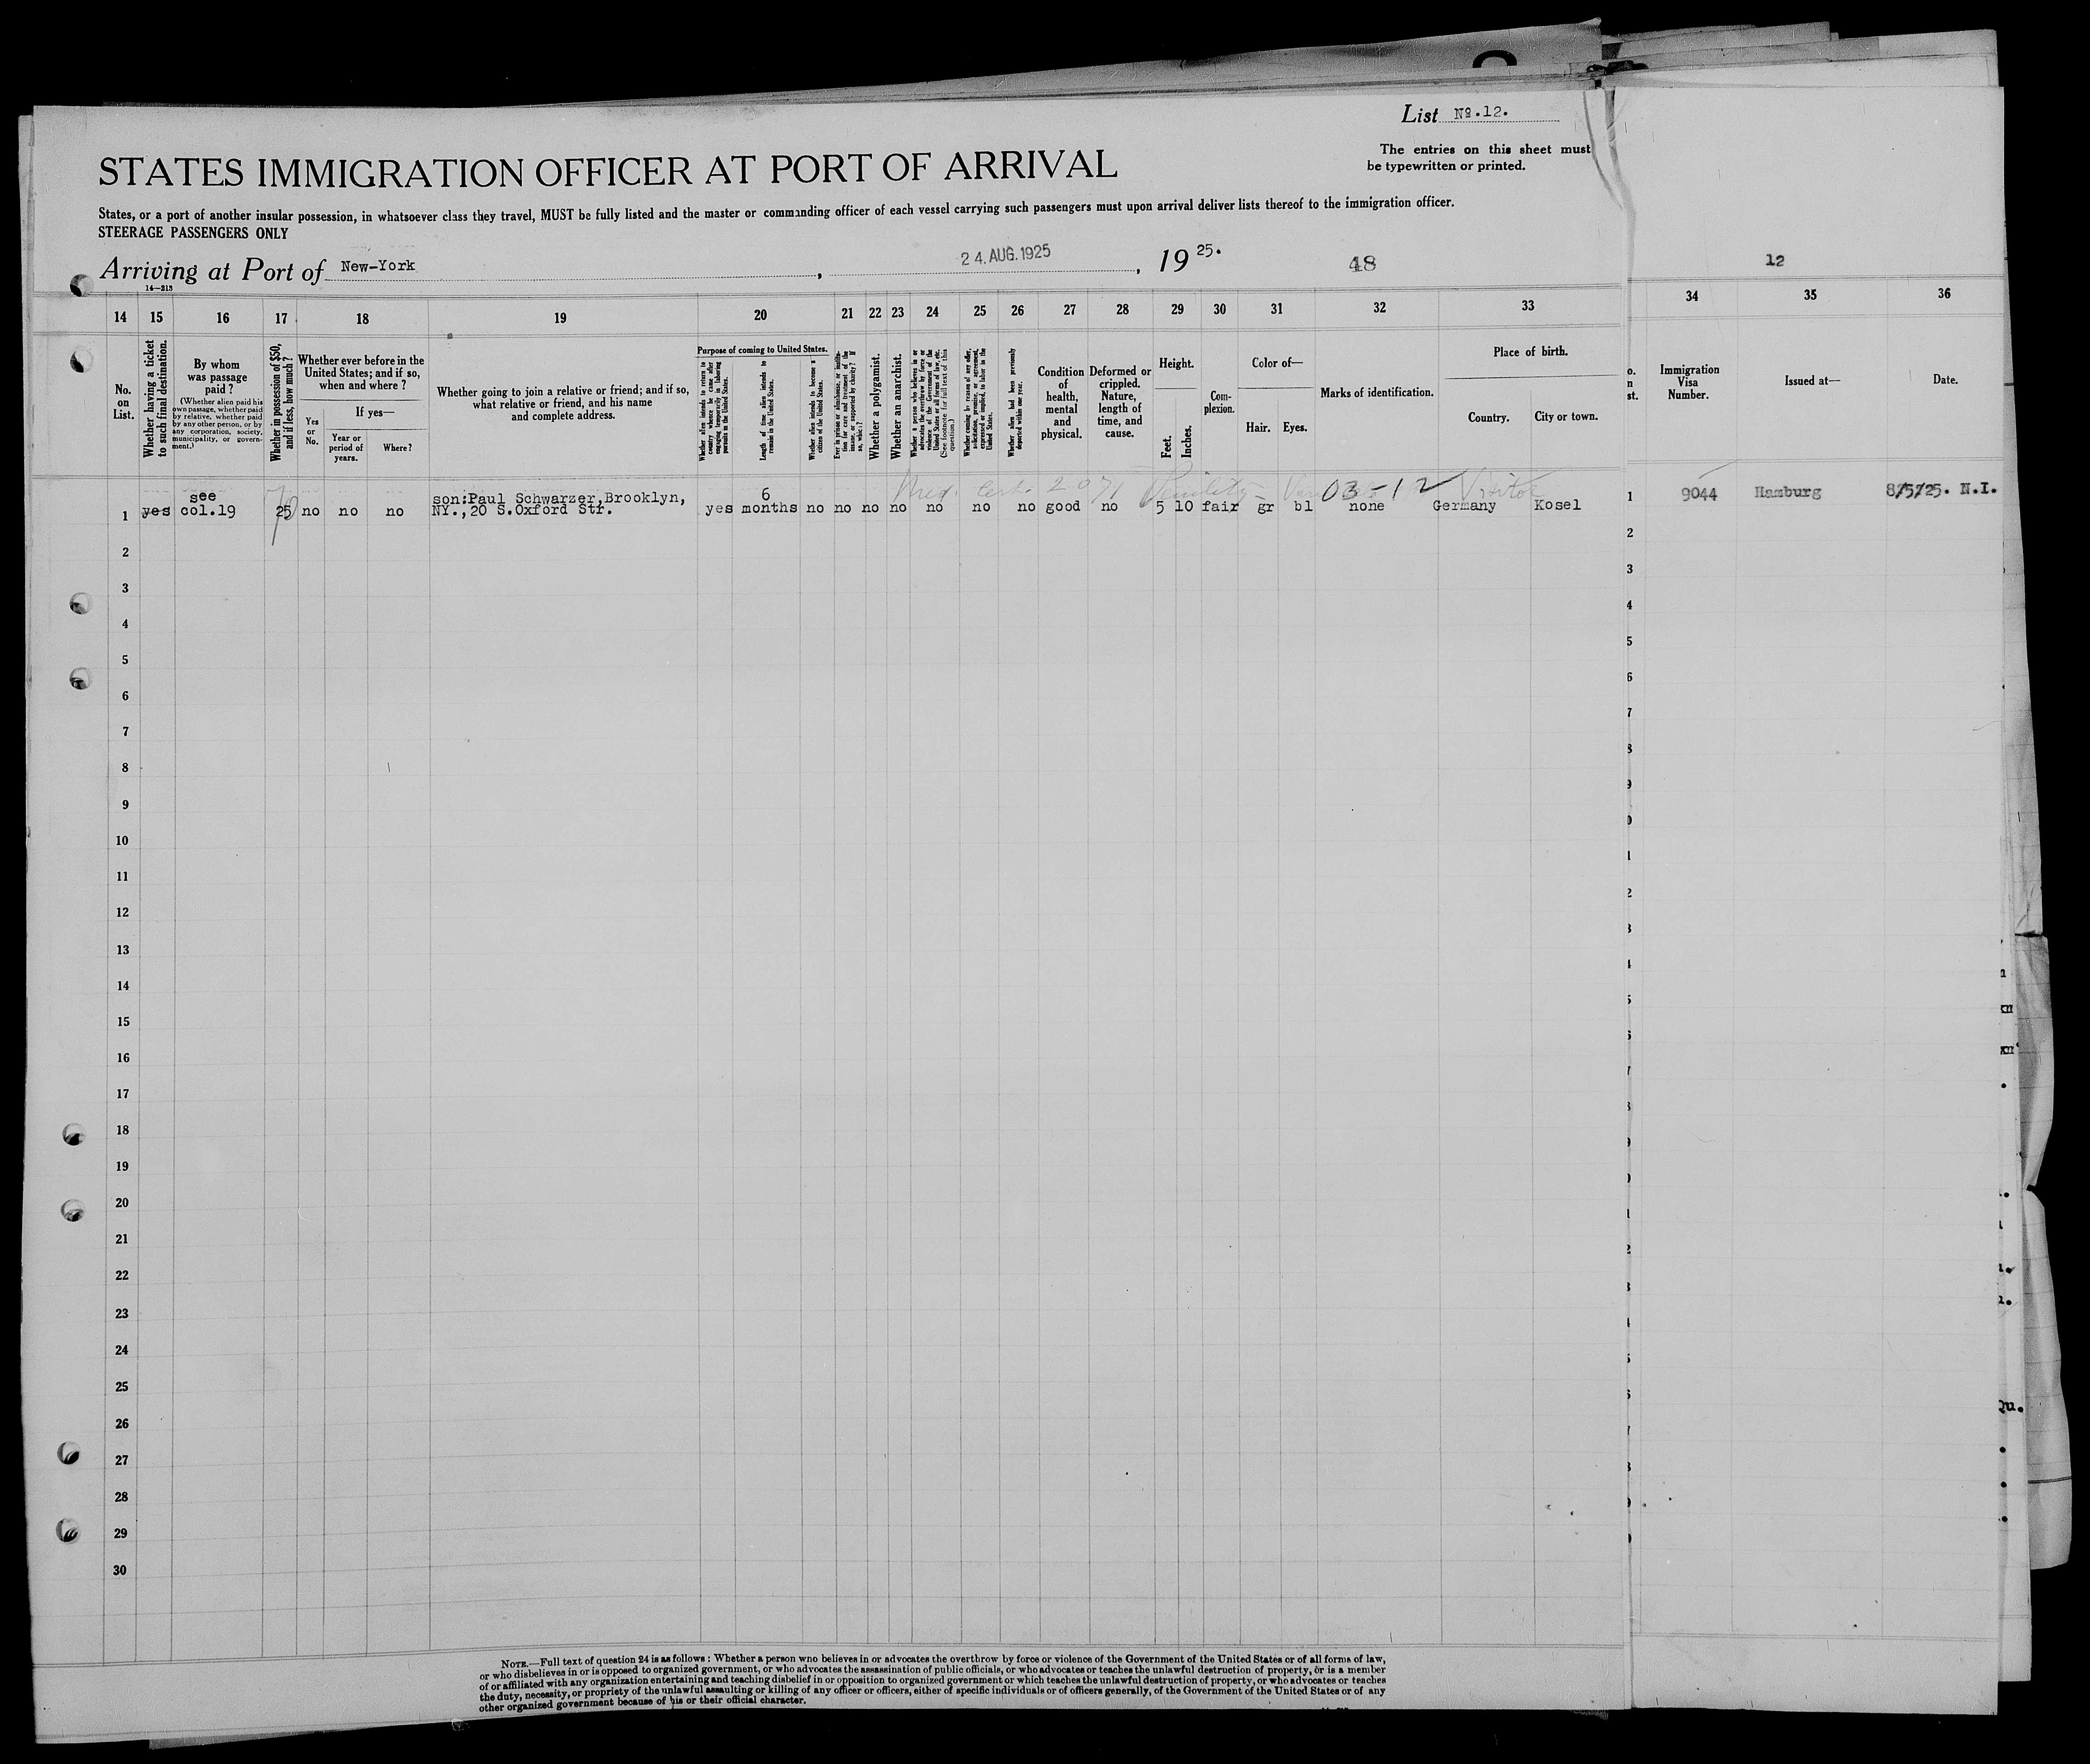 List Nº.12.
The entries on this sheet must
be typewritten or printed.
STATES IMMIGRATION OFFICER AT PORT OF ARRIVAL
States, or a port of another insular possession, in whatsoever class they travel, MUST be fully listed and the master or commanding officer of each vessel carrying such passengers must upon arrival deliver lists thereof to the immigration officer.
STEERAGE PASSENGERS ONLY
Arriving at Port of New-York, 24.AUG.1925, 19 25.
48
12
14—213
14 15 16 17 18 19 20 21 22 23 24 25 26 27 28 29 30 31 32 33 34 35 36
No. on List.
Whether having a ticket to such final destination.
By whom was passage paid?
(Whether alien paid his own passage, whether paid by relative, whether paid by any other person, or by any corporation, society, municipality, or government.)
Whether in possession of $50, and if less, how much?
Whether ever before in the United States; and if so, when and where?
Yes or No.
If yes—
Year or period of years.
Where?
Whether going to join a relative or friend; and if so, what relative or friend, and his name and complete address.
Purpose of coming to United States.
Whether alien intends to return to country whence he came after engaging temporarily in laboring pursuits in the United States.
Length of time alien intends to remain in the United States.
Whether alien intends to become a citizen of the United States.
Ever in prison or almshouse, or institution for care and treatment of the insane, or supported by charity? If so, which?
Whether a polygamist.
Whether an anarchist.
Whether a person who believes in or advocates the overthrow by force or violence of the Government of the United States or all forms of law, etc. (See footnote for full text of this question.)
Whether coming by reason of any offer, solicitation, promise, or agreement, expressed or implied, to labor in the United States.
Whether alien had been previously deported within one year.
Condition of health, mental and physical.
Deformed or crippled. Nature, length of time, and cause.
Height.
Feet.
Inches.
Complexion.
Color of—
Hair.
Eyes.
Marks of identification.
Place of birth.
Country.
City or town.
Immigration Visa Number.
Issued at—
Date.
Med. Cert. 2071 Senility 03-12 Visitor
1 yes see col.19 25 no no no son:Paul Schwarzer,Brooklyn, NY.,20 S.Oxford Str. yes 6 months no no no no no no no good no 5 10 fair gr bl none Germany Kosel
1 9044 Hamburg 8/5/25. N.I.
2
3
4
5
6
7
8
9
10
11
12
13
14
15
16
17
18
19
20
21
22
23
24
25
26
27
28
29
30
NOTE.—Full text of question 24 is as follows: Whether a person who believes in or advocates the overthrow by force or violence of the Government of the United States or of all forms of law,
or who disbelieves in or is opposed to organized government, or who advocates the assassination of public officials, or who advocates or teaches the unlawful destruction of property, or is a member
of or affiliated with any organization entertaining and teaching disbelief in or opposition to organized government or which teaches the unlawful destruction of property, or who advocates or teaches
the duty, necessity, or propriety of the unlawful assaulting or killing of any officer or officers, either of specific individuals or of officers generally, of the Government of the United States or of any
other organized government because of his or their official character.